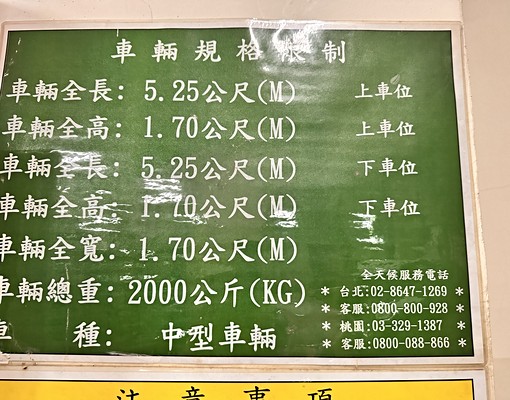 車輛規格限制
車輛全長: 5.25公尺(M) 上車位
車輛全高: 1.70公尺(M) 上車位
車輛全長: 5.25公尺(M) 下車位
車輛全高: 1.70公尺(M) 下車位
車輛全寬: 1.70公尺(M)
車輛總重: 2000公斤(KG)
車 種: 中型車輛
全天候服務電話
* 台北:02-8647-1269 *
* 客服:0800-800-928 *
* 桃園:03-329-1387 *
* 客服:0800-088-866 *
注意事項